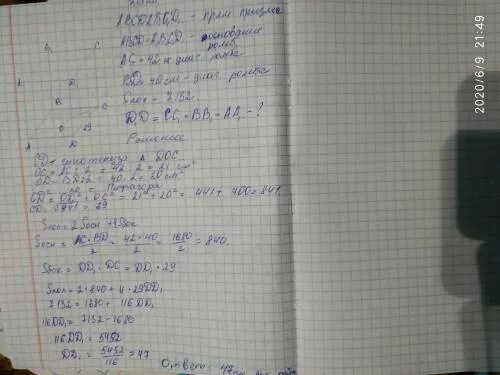 ABCDA₁B₁C₁D₁ - прям призма
ABCD = A₁B₁C₁D₁ - основание
ромб
AC = 42 см диаг ромба
BD = 40 см - диаг. ромба
Sпол = 7132
D₁D = CC₁ = BB₁ = AA₁ - ?
Решение
CD = гипотенуза Δ DOC.
OC = AC : 2 = 42 : 2 = 21 см
OD = BD : 2 = 40 : 2 = 20 см
Пифагора
CD² = OD² + OC² = 21² + 20² = 441 + 400 = 841.
CD = √841 = 29
Sпол = 2Sосн + 4Sбок
Sосн = AC · BD / 2 = 42 · 40 / 2 = 1680 / 2 = 840.
Sбок = DD₁ · DC = DD₁ · 29
Sпол = 2 · 840 + 4 · 29DD₁
7132 = 1680 + 116DD₁
116DD₁ = 7132 - 1680
116DD₁ = 5452
DD₁ = 5452 / 116 = 47
Ответ: 47см
B₁ C₁
A₁ D₁
B C
O
A D
2020/6/9 21:49